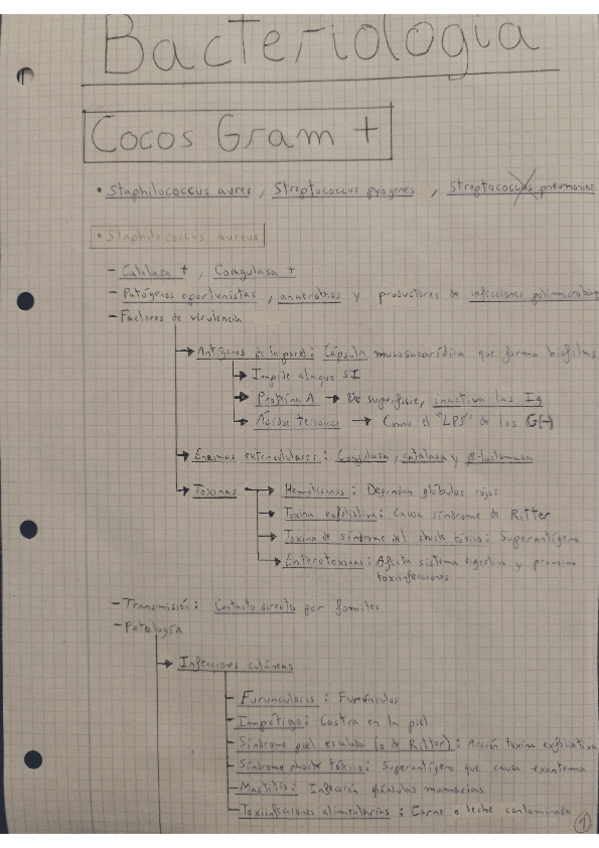 Bacteriología
Cocos Gram +
• Staphilococcus aures, Streptococcus pyogenes, Streptococcus pneumoniae
• Staphilococcus aureus
- Catalasa +, Coagulasa +
- Patógenos oportunistas, anaerobios y productores de infecciones polimicrobia
- Factores de virulencia
→ Antígenos de la pared: Cápsula mucosacarídica que forma biofilms
→ Impide ataque SI
→ Proteína A → De superficie, inactiva las Ig
→ Ácidos teicoicos → Como el "LPS" de los G(-)
→ Enzimas extracelulares: Coagulasa, catalasa y β-lactamasa
→ Toxinas → Hemolisinas: Degradan glóbulos rojos
→ Toxina exfoliativa: Causa síndrome de Ritter
→ Toxina de síndrome del shock tóxico: Superantígeno
→ Enterotoxinas: Afecta sistema digestivo y provocan
toxiinfecciones
- Transmisión: Contacto directo por fomites
- Patología
→ Infecciones cutáneas
- Furunculosis: Furúnculos
- Impétigo: Costra en la piel
- Síndrome piel escalada (o de Ritter): Acción toxina exfoliativa
- Síndrome shock tóxico: Superantígeno que causa exantema
- Mastitis: Infección glándulas mamarias
- Toxiinfecciones alimentarias: Carne o leche contaminada
1